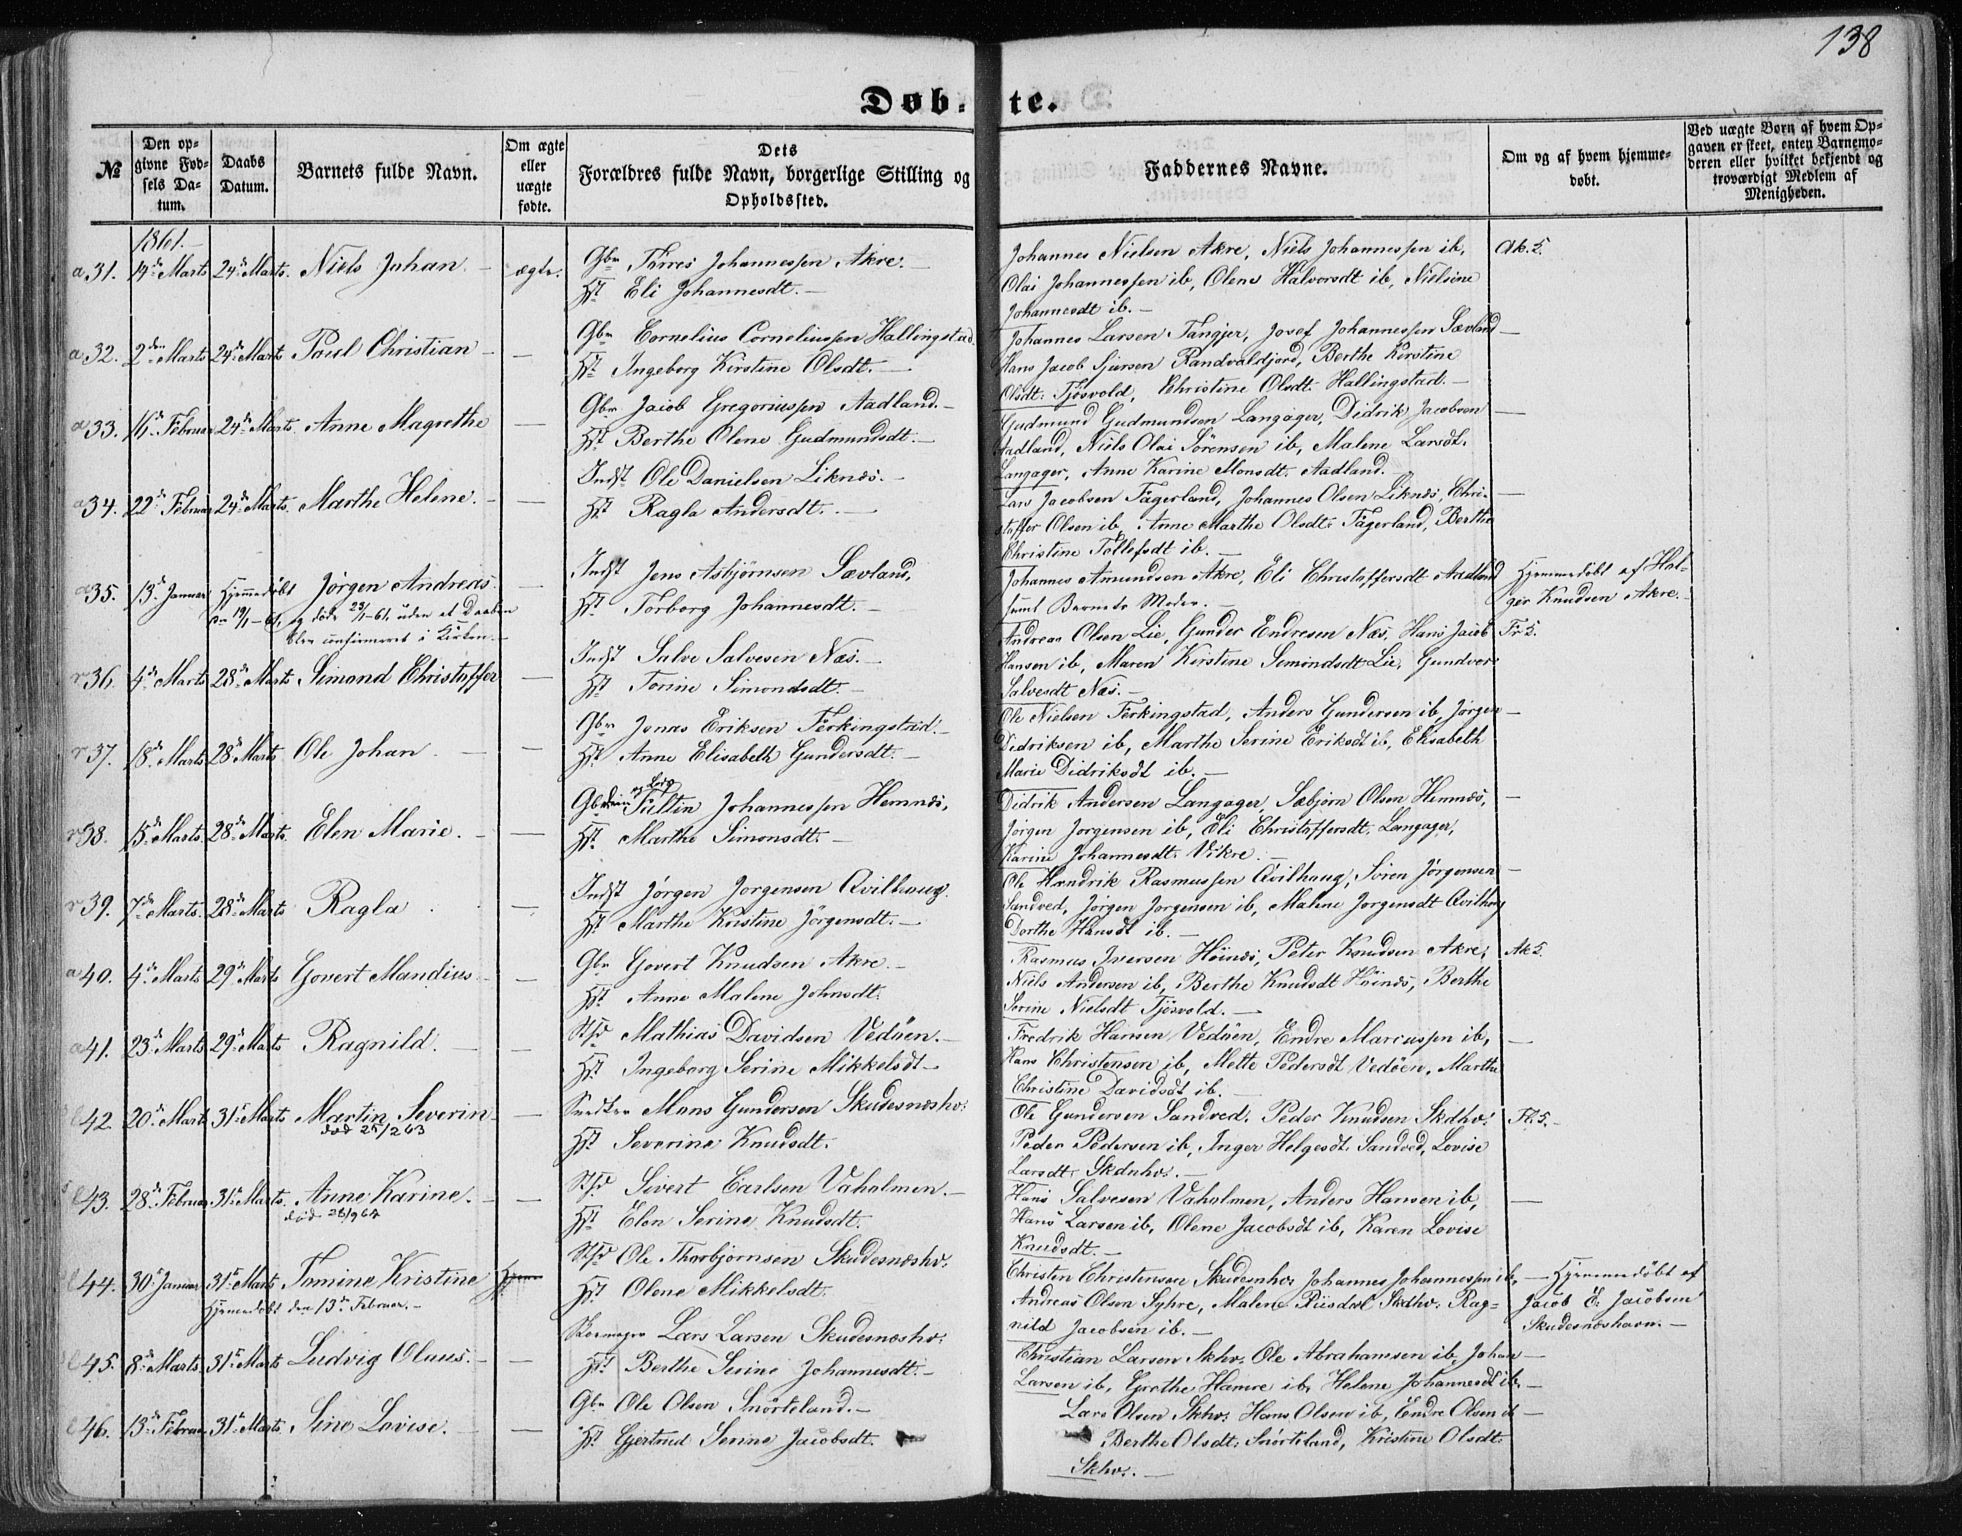 138
Døb- te.
№
Den op-
givne Fød-
sels Da-
tum.
Daabs
Datum.
Barnets fulde Navn.
Om ægte
eller
uægte
fødte.
Dets
Forældres fulde Navn, borgerlige Stilling og
Opholdssted.
Faddernes Navne.
Om og af hvem hjemme-
døbt.
Ved uægte Børn af hvem Op-
gaven er skeet, enten Barnemo-
deren eller hvilket bekjendt og
troværdigt Medlem af
Menigheden.
1861.
a 31. 14de Marts 24de Marts. Niels Johan. - ægte. Gbr Tørres Johannessen Akre. -
Hst Eli Johannesdt. -
Johannes Nielsen Akre, Niels Johannessen ib, Ak. 5.
Olai Johannessen ib, Olene Halvorsdt ib, Nielsine
Johannesdt ib. -
a 32. 2den Marts 24de Marts Poul Christian - — Gbr Cornelius Corneliussen Hallingstad
Hst Ingeborg Kirstine Olsdt. -
Johannes Larsen Tangjer, Josef Johannessen Sævland —
Hans Jacob Sjursen Randvaldjord, Berthe Kirstine
Olsdt. Tjøsvold, Christine Olsdt. Hallingstad. -
a 33. 16de Februar 24de Marts. Anne Magrethe — Gbr Jacob Gregoriussen Aadland. -
Hst Berthe Olene Gudmundsdt. -
Gudmund Gudmundsen Langager, Didrik Jacobsen —
Aadland, Niels Olai Sørensen ib, Malene Larsdt.
Langager, Anne Karine Monsdt. Aadland. -
a 34. 22de Februar 24de Marts. Marthe Helene. - — Indst Ole Danielsen Liknes. -
Hst Ragla Andersdt. -
Lars Jacobsen Fagerland, Johannes Olsen Liknes, Chri- —
stoffer Olsen ib, Anne Marthe Olsdt. Fagerland, Berthe
Christine Tollefsdt ib. -
a 35. 13de Januar Hjemmedøbt Jørgen Andreas. — Indst Jens Asbjørnsen Sævland,
den 19/1-61, og døde 23/1-61, uden at Daaben
blev confirmeret i Kirken. -
Hst Torborg Johannesdt. -
Johannes Amundsen Akre, Eli Christoffersdt Aadland
samt Barnets Moder. -
Hjemmedøbt af Hal-
gjer Knudsen Akre. -
r 36. 4de Marts 28de Marts Simond Christoffer — Indst Salve Salvesen Næs. -
Hst Torine Simondsdt. -
Andreas Olsen Lie, Gunder Endresen Næs, Hans Jacob Fr 5.
Hansen ib, Maren Kirstine Semindsdt Lie, Gundvor
Salvesdt Næs. -
r 37. 18de Marts 28de Marts Ole Johan. - — Gbr Jonas Eriksen Ferkingstad. -
Hst Anne Elisabeth Gundersdt. -
Ole Nielsen Ferkingstad, Anders Gundersen ib, Jørgen —
Didriksen ib, Marthe Serine Eriksdt ib, Elisabeth
Marie Didriksdt ib. -
r 38. 15de Marts. 28de Marts. Elen Marie. - — Gbr Johannessen Hemnes,
Hst Marthe Simonsdt. -
Didrik Andersen Langager, Sæbjørn Olsen Hemnes, —
Jørgen Jørgensen ib, Eli Christoffersdt. Langager,
Karine Johannesdt. Vikre. -
r 39. 7de Marts. 28de Marts Ragla — Indst Jørgen Jorgensen Qvilhaug.
Hst Marthe Kristine Jörgensdt. -
Ole Hendrik Rasmussen Qvilhaug, Sören Jörgensen —
Sandved, Jørgen Jorgensen ib, Malene Jorgensdt Qvilhoug
Dorthe Hansdt ib. -
a 40. 4de Marts 29de Marts Govert Mandius - — Gbr Govert Knudsen Akre. -
Hst Anne Malene Johnsdt.
Rasmus Iversen Höines, Peter Knudsen Akre, Ak 5.
Niels Andersen ib, Berthe Knudsdt Höines, Berthe
Serine Nielsdt Tjösvold. -
a 41. 23de Marts 29de Marts Ragnild. - — Stfd Mathias Davidsen Vedöen. -
Hst Ingeborg Serine Mikkelsdt -
Fredrik Hansen Vedöen, Endre Marcussen ib, —
Hans Christensen ib, Mette Pedersdt Vedöen, Marthe
Christine Davidsdt ib. -
42. 20de Marts 31te Marts Martin Severin —
død 25/2 63
Mons Gundersen Skudesneshv.
Hst Severine Knudsdt.
Ole Gundersen Sandved, Peder Knudsen Skdhv. Fl. 5. -
Peder Pedersen ib, Inger Helgesdt Sandved, Lovise
Larsdt. Skdnhv. -
43. 28de Februar 31te Marts. Anne Karine. - —
död 28/9 64
Stfd Sivert Carlsen Vaholmen. -
Hst Elen Serine Knudsdt.
Hans Salvesen Vaholmen, Anders Hansen ib, —
Hans Larsen ib, Olene Jacobsdt ib, Karen Lovise
Knudsdt. -
44. 30te Januar 31te Marts Tomine Kristine
Hjemmedöbt den 13de Februar. -
Stfd Ole Thorbjornsen Skudesneshv.
Hst Olene Mikkelsdt.
Christen Christensen Skudesnhv, Johannes Johannessen ib,
Andreas Olsen Syhre, Malene Riisdal Skdhv. Rag-
nild Jacobsen ib. -
— Hjemmedöbt af
Jacob E. Jacobsen
Skudesneshavn. -
45. 8de Marts. 31te Marts Ludvig Olaus. - — Skomager Lars Larsen Skudesneshv.
Hst Berthe Serine Johannesdt. -
Christian Larsen Skhv. Ole Abrahamsen ib, Johan —
Larsen ib, Grethe Hamre ib, Helene Johannesdt ib, —
46. 13de Februar 31te Marts. Sine Lovise. - — Gbr Ole Olsen Snörteland. -
Hst Gjertrud Serine Jacobsdt.
Lars Olsen Skhv. Hans Olsen ib, Endre Olsen ib —
Berthe Olsdt. Snörteland, Kristine Olsdt.
Skhv. -